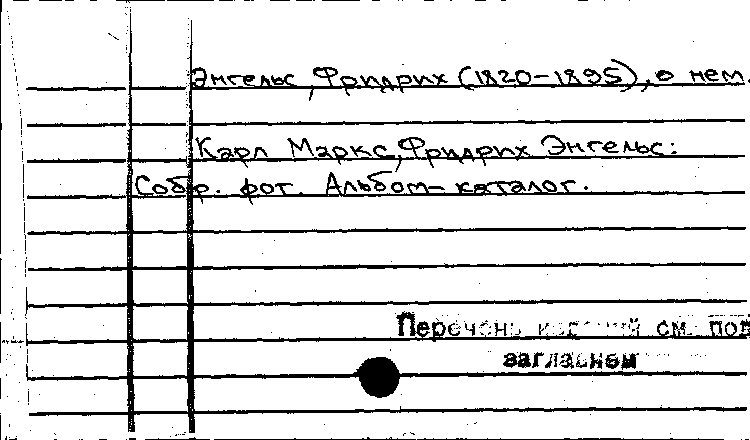 Энгельс, Фридрих (1820-1895), о нем.
Карл Маркс, Фридрих Энгельс:
Собр. фот. Альбом-каталог.
Перечень изданий см. под
заглавием